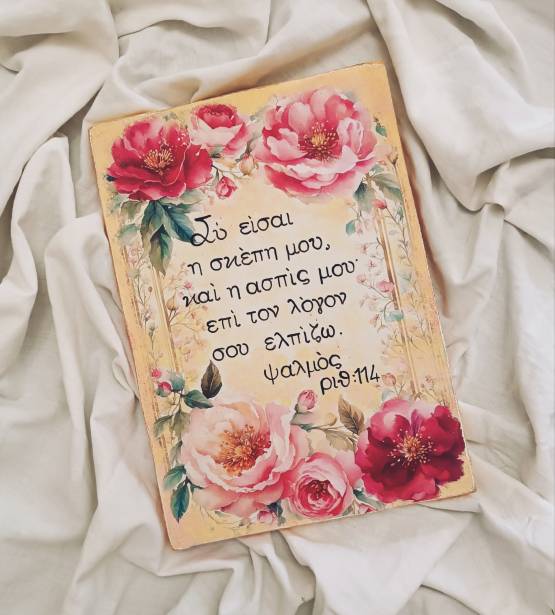 Σὺ εἰσαι
η σκὲπη μου,
καὶ η ασπὶς μου·
επὶ τον λὸγον
σου ελπὶζω.
ψαλμὸς
ριθ:114